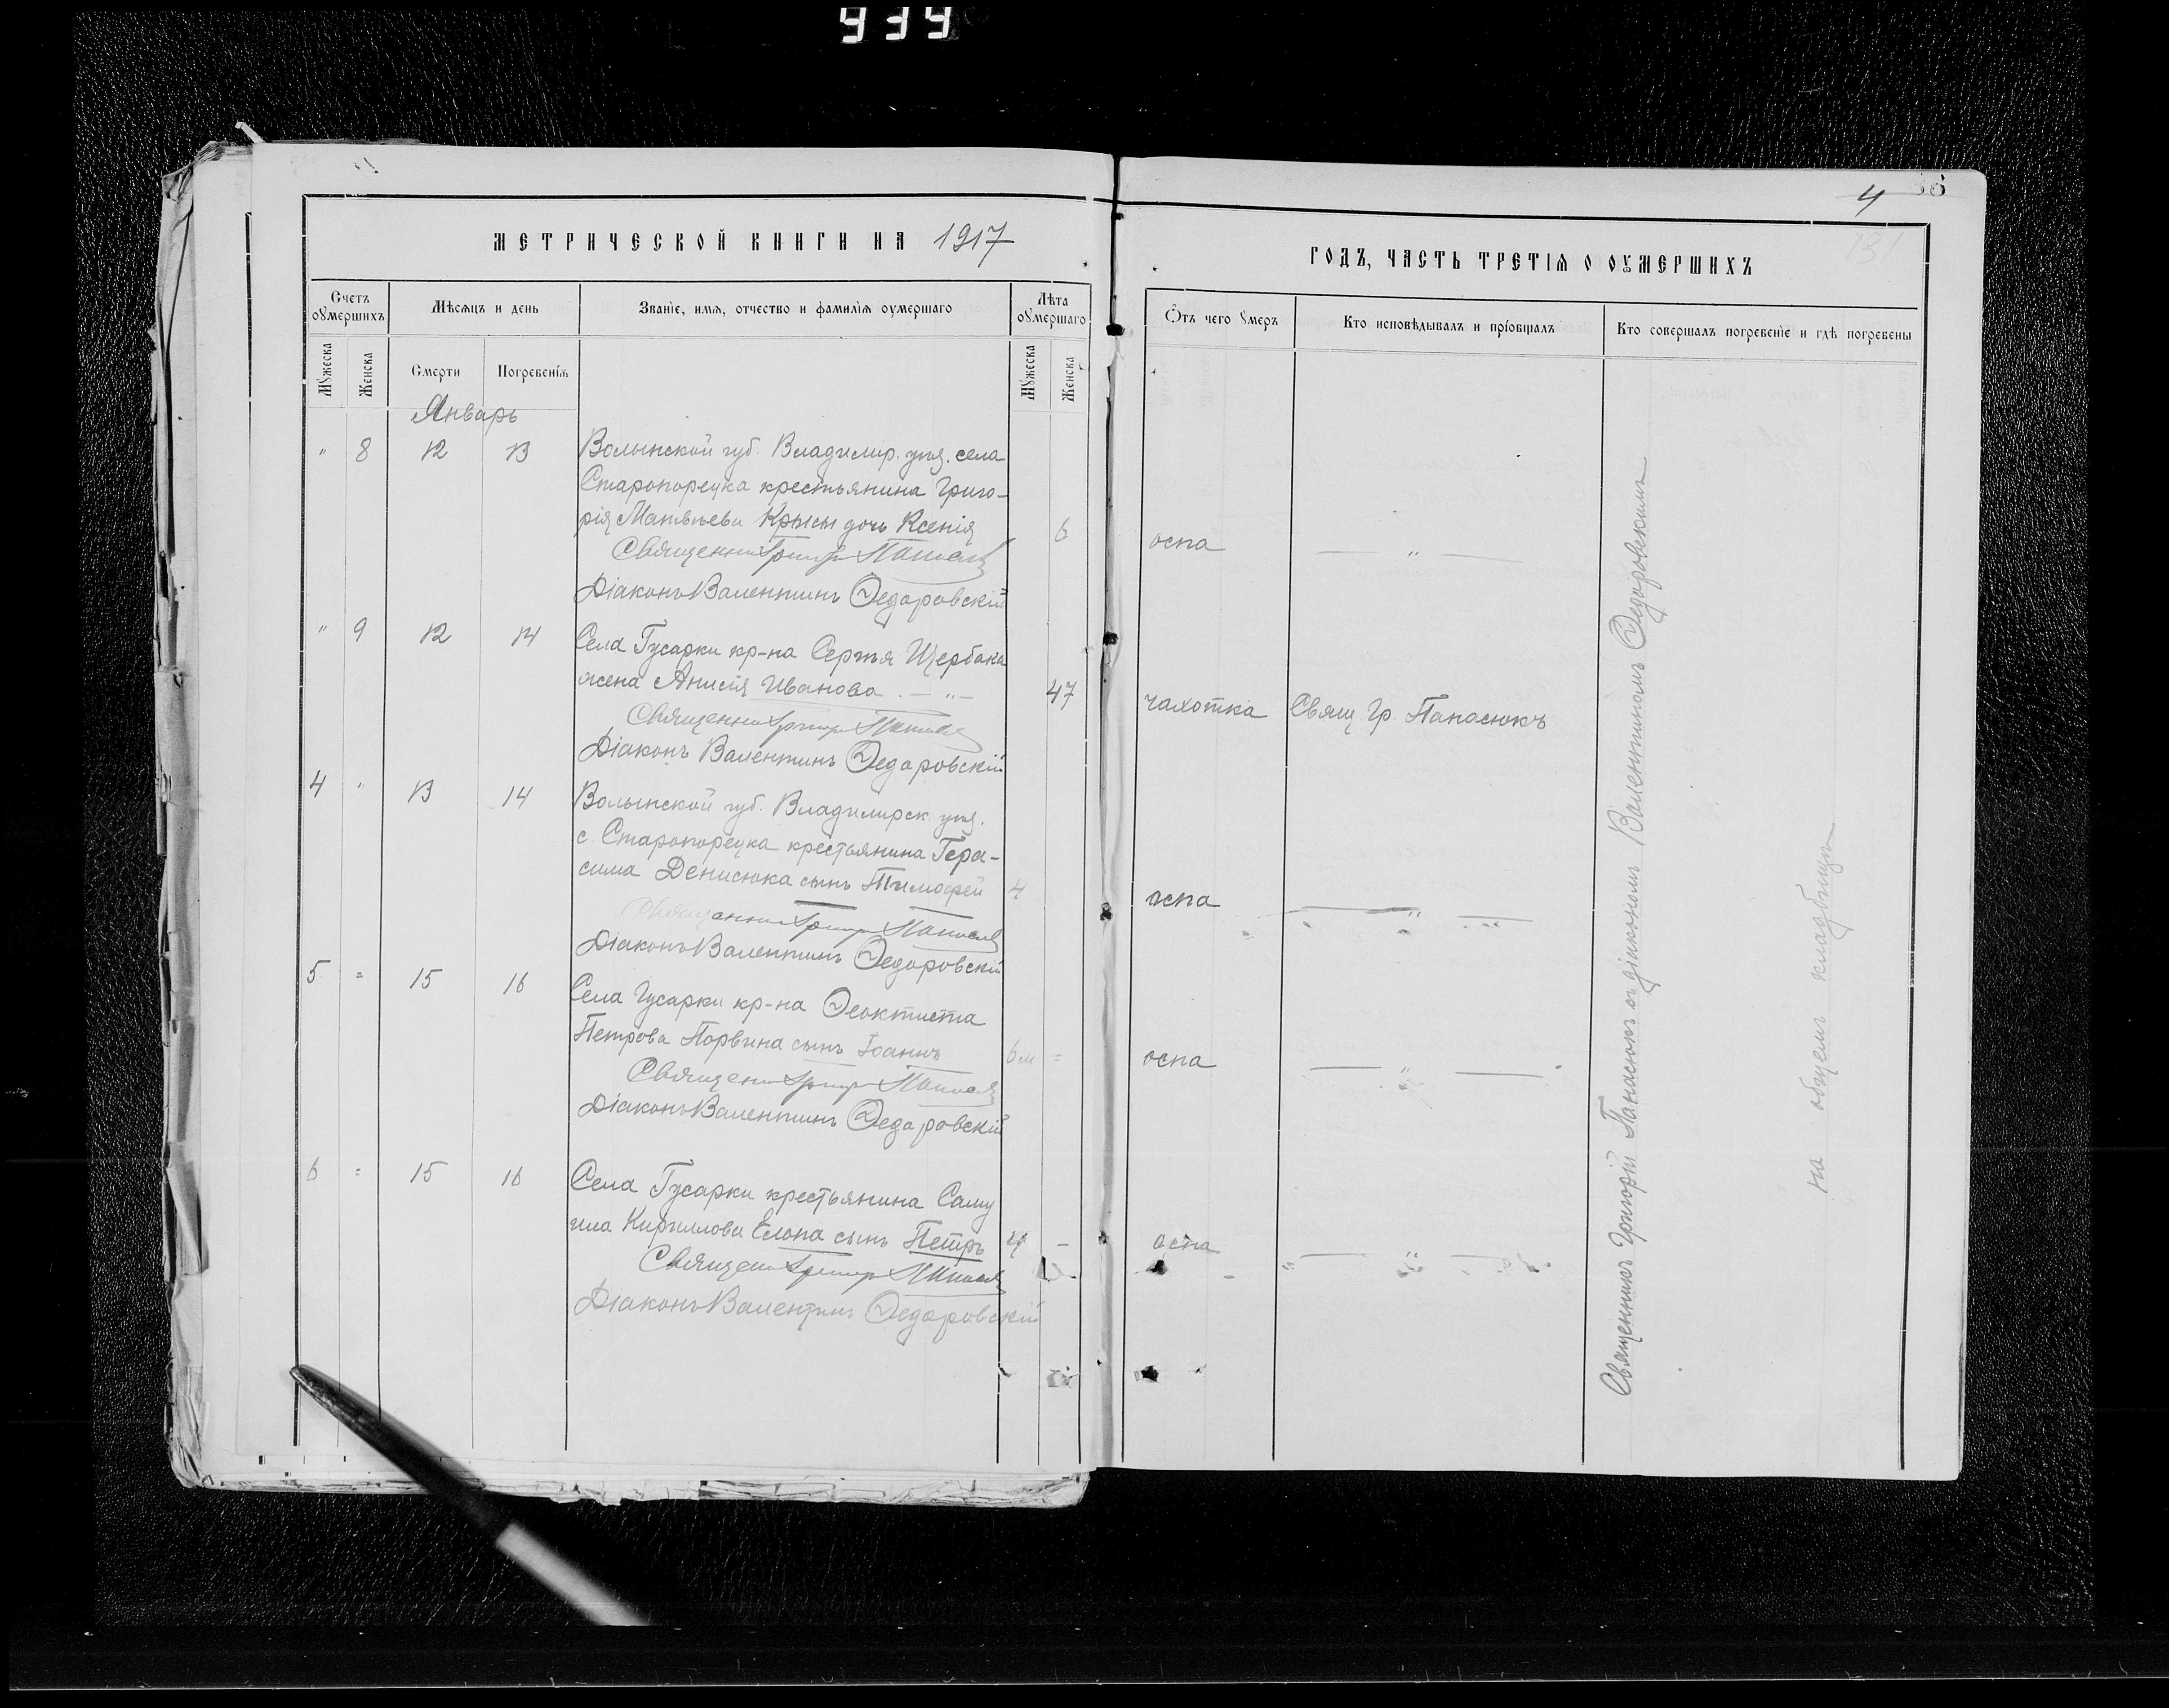 939
4 36
МЕТРИЧЕСКОЙ КНИГИ НА 1917
ГОДЪ, ЧАСТЬ ТРЕТІЯ О ОУМЕРШИХЪ
Счетъ оумершихъ
Мѣсяцъ и день
Званіе, имя, отчество и фамилія оумершаго
Лѣта оумершаго
Отъ чего умеръ
Кто исповѣдывалъ и пріобщалъ
Кто совершалъ погребеніе и гдѣ погребены
Мужеска Женска Смерти Погребенія Мужеска Женска
Январь
" 8 12 13 Волынской губ. Владимир. уѣз. села
Старопорецка крестьянина Григо-
рія Матвѣева Крысы дочь Ксенія 6 оспа — " —
Священникъ Григорій Панасюкъ
Діаконъ Валентинъ Ѳедоровскій
" 9 12 14 Села Гусарки кр-на Сергѣя Щербака
жена Анисія Иванова — " — 47 чахотка Свящ. Гр. Панасюкъ
Священникъ Григорій Панасюкъ
Діаконъ Валентинъ Ѳедоровскій
4 " 13 14 Волынской губ. Владимирск. уѣз.
с. Старопорецка крестьянина Гера-
сима Денисюка сынъ Тимофей 4 оспа — " —
Священникъ Григорій Панасюкъ
Діаконъ Валентинъ Ѳедоровскій
5 = 15 16 Села Гусарки кр-на Ѳеоктиста
Петрова Порвина сынъ Іоаннъ 6 м = оспа — " —
Священникъ Григорій Панасюкъ
Діаконъ Валентинъ Ѳедоровскій
6 = 15 16 Села Гусарки крестьянина Саму
ила Кириллова Елона сынъ Петръ 4 — оспа — " —
Священникъ Григорій Панасюкъ
Діаконъ Валентинъ Ѳедоровскій
Священникъ Григорій Панасюкъ съ діакономъ Валентиномъ Ѳедоровскимъ
на общемъ кладбищѣ